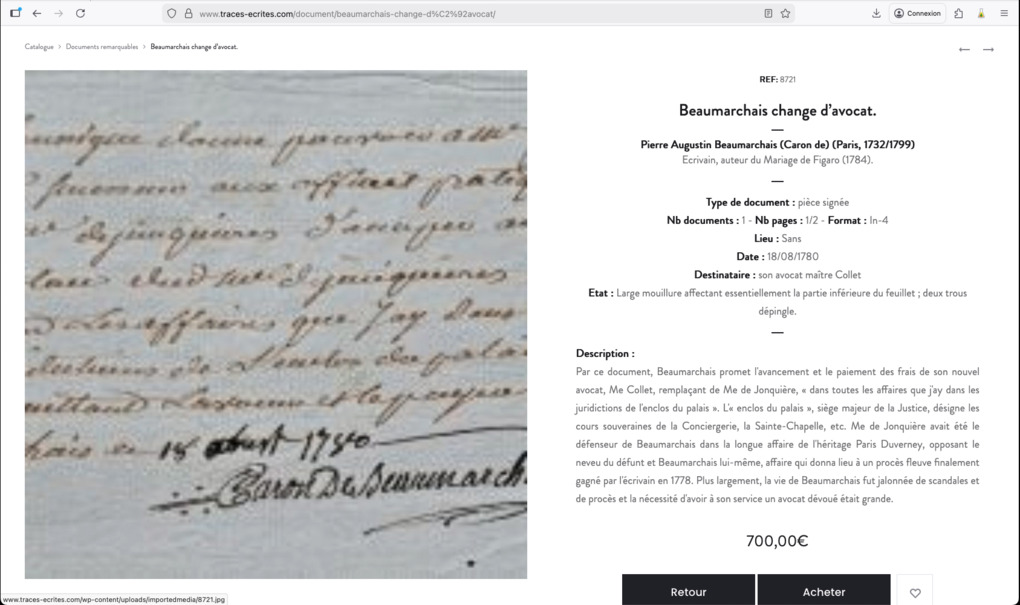 www.traces-ecrites.com/document/beaumarchais-change-d%C2%92avocat/
Connexion
Catalogue > Documents remarquables > Beaumarchais change d'avocat.
REF: 8721
Beaumarchais change d'avocat.
Pierre Augustin Beaumarchais (Caron de) (Paris, 1732/1799)
Ecrivain, auteur du Mariage de Figaro (1784).
Type de document : pièce signée
Nb documents : 1 - Nb pages : 1/2 - Format : In-4
Lieu : Sans
Date : 18/08/1780
Destinataire : son avocat maître Collet
Etat : Large mouillure affectant essentiellement la partie inférieure du feuillet ; deux trous
dépingle.
Description :
Par ce document, Beaumarchais promet l'avancement et le paiement des frais de son nouvel
avocat, Me Collet, remplaçant de Me de Jonquière, « dans toutes les affaires que j'ay dans les
juridictions de l'enclos du palais ». L'« enclos du palais », siège majeur de la Justice, désigne les
cours souveraines de la Conciergerie, la Sainte-Chapelle, etc. Me de Jonquière avait été le
défenseur de Beaumarchais dans la longue affaire de l'héritage Paris Duverney, opposant le
neveu du défunt et Beaumarchais lui-même, affaire qui donna lieu à un procès fleuve finalement
gagné par l'écrivain en 1778. Plus largement, la vie de Beaumarchais fut jalonnée de scandales et
de procès et la nécessité d'avoir à son service un avocat dévoué était grande.
700,00€
Retour
Acheter
pouvoir a Me
aux offices
de jonquieres
de jonquieres
Les affaires que j'ay dans
de L'enclos du palai
18 aoust 1780
Caron De Beaumarch
www.traces-ecrites.com/wp-content/uploads/importedmedia/8721.jpg